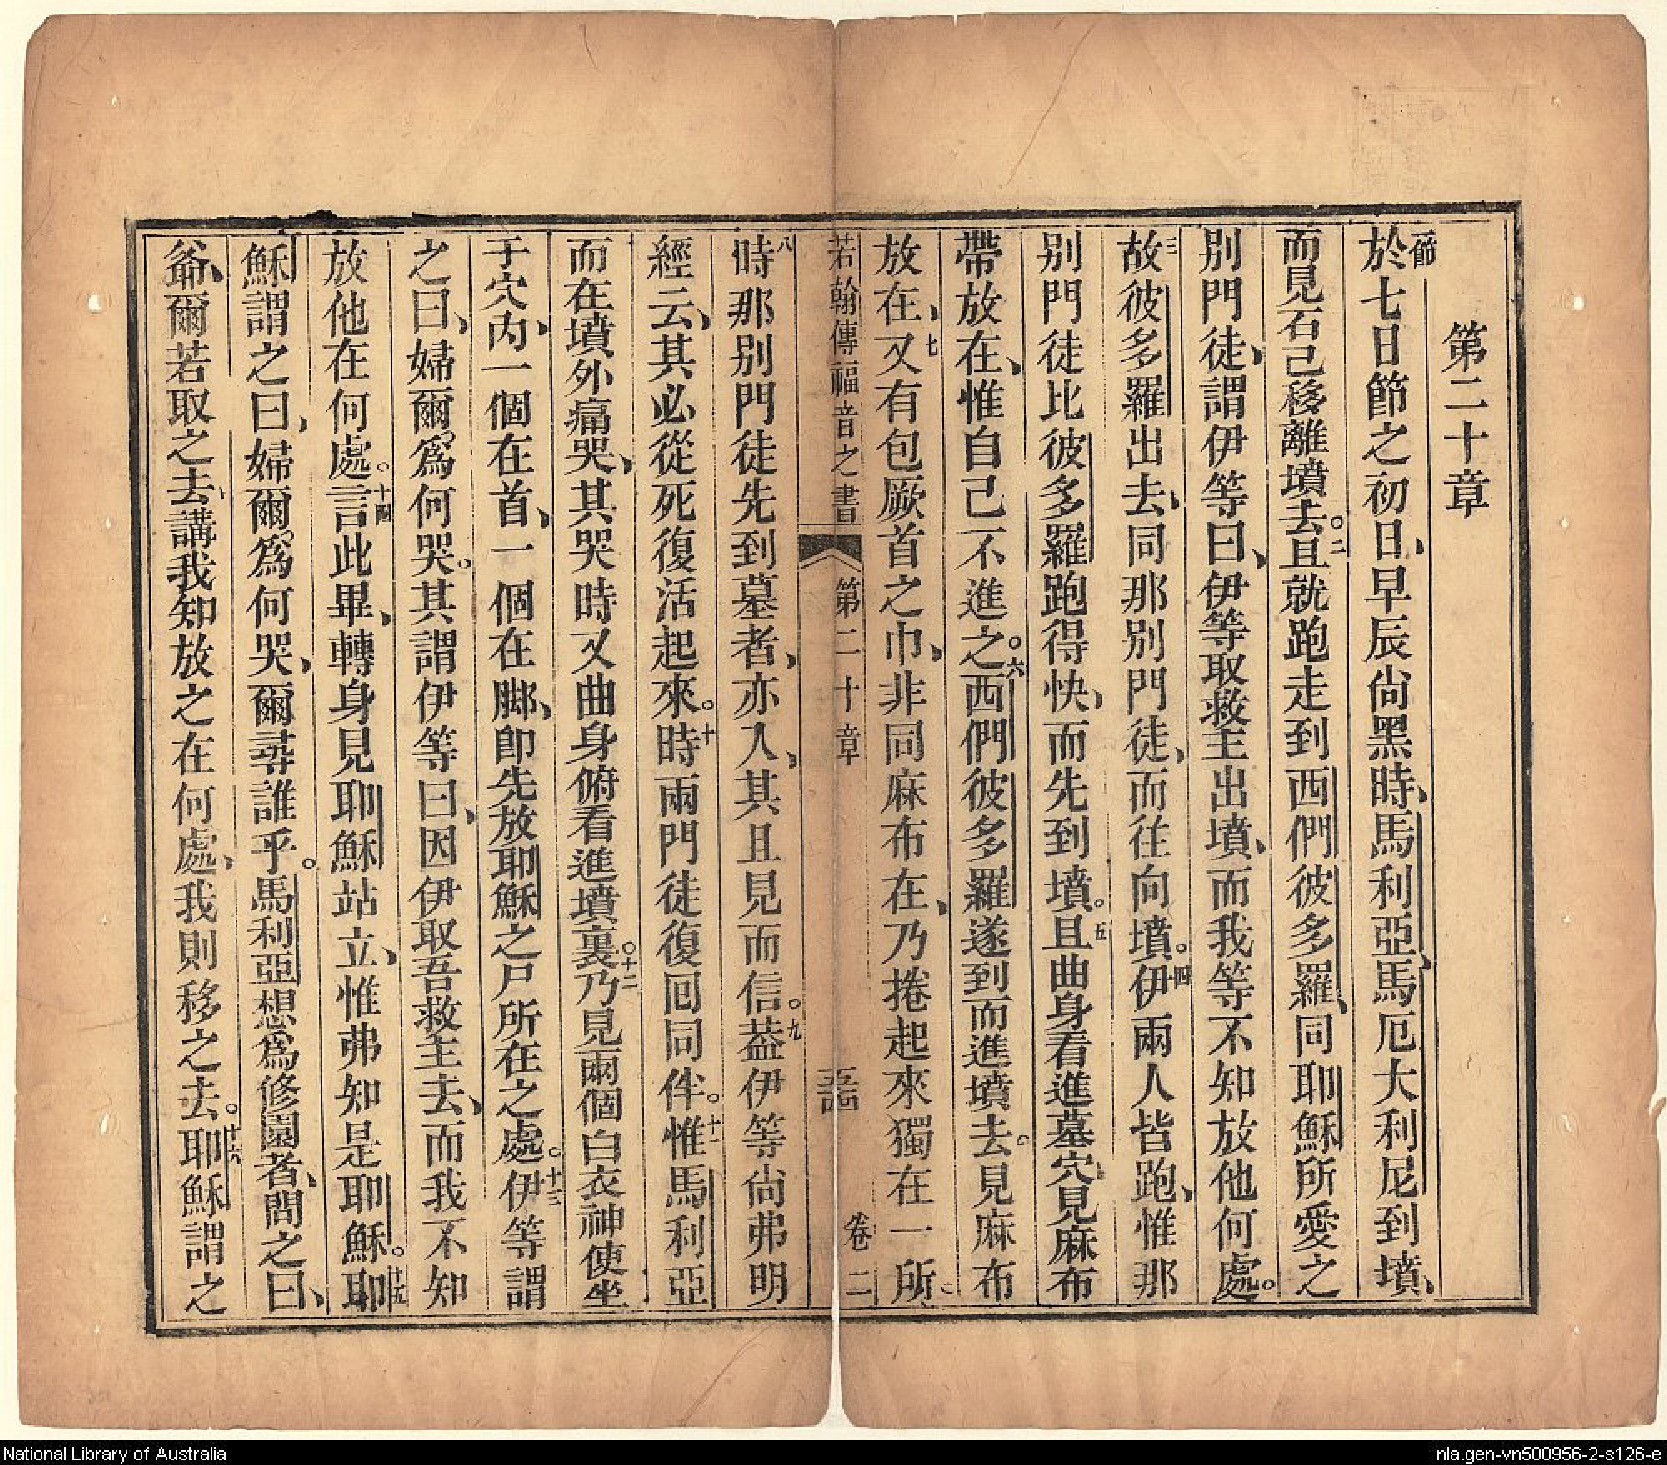 第二十章
一節於七日節之初日、早辰尚黑時、馬利亞馬厄大利尼到墳、
而見石已移離墳去。二且就跑走到西們彼多羅、同耶穌所愛之
別門徒、謂伊等曰、伊等取救主出墳、而我等不知放他何處。
三故彼多羅出去、同那別門徒、而往向墳。四伊兩人皆跑、惟那
別門徒比彼多羅跑得快、而先到墳。五且曲身看進墓穴、見麻布
帶放在、惟自己不進之。六西們彼多羅遂到而進墳去。見麻布
放在、七又有包厥首之巾、非同麻布在、乃捲起來獨在一所。
若翰傳福音之書 第二十章 卷二
八時那別門徒先到墓者、亦入、其且見而信。九葢伊等尚弗明
經云、其必從死復活起來。十時兩門徒復囘同伴。十一惟馬利亞
而在墳外痛哭、其哭時又曲身俯看進墳裏。十二乃見兩個白衣神使坐
于穴內、一個在首、一個在脚、即先放耶穌之尸所在之處。十三伊等謂
之曰、婦爾爲何哭。其謂伊等曰、因伊取吾救主去、而我不知
放他在何處。十四言此畢、轉身見耶穌站立、惟弗知是耶穌。十五耶
穌謂之曰、婦爾爲何哭、爾尋誰乎。馬利亞想爲修園者、問之曰、
爺、爾若取之去、講我知放之在何處、我則移之去。十六耶穌謂之